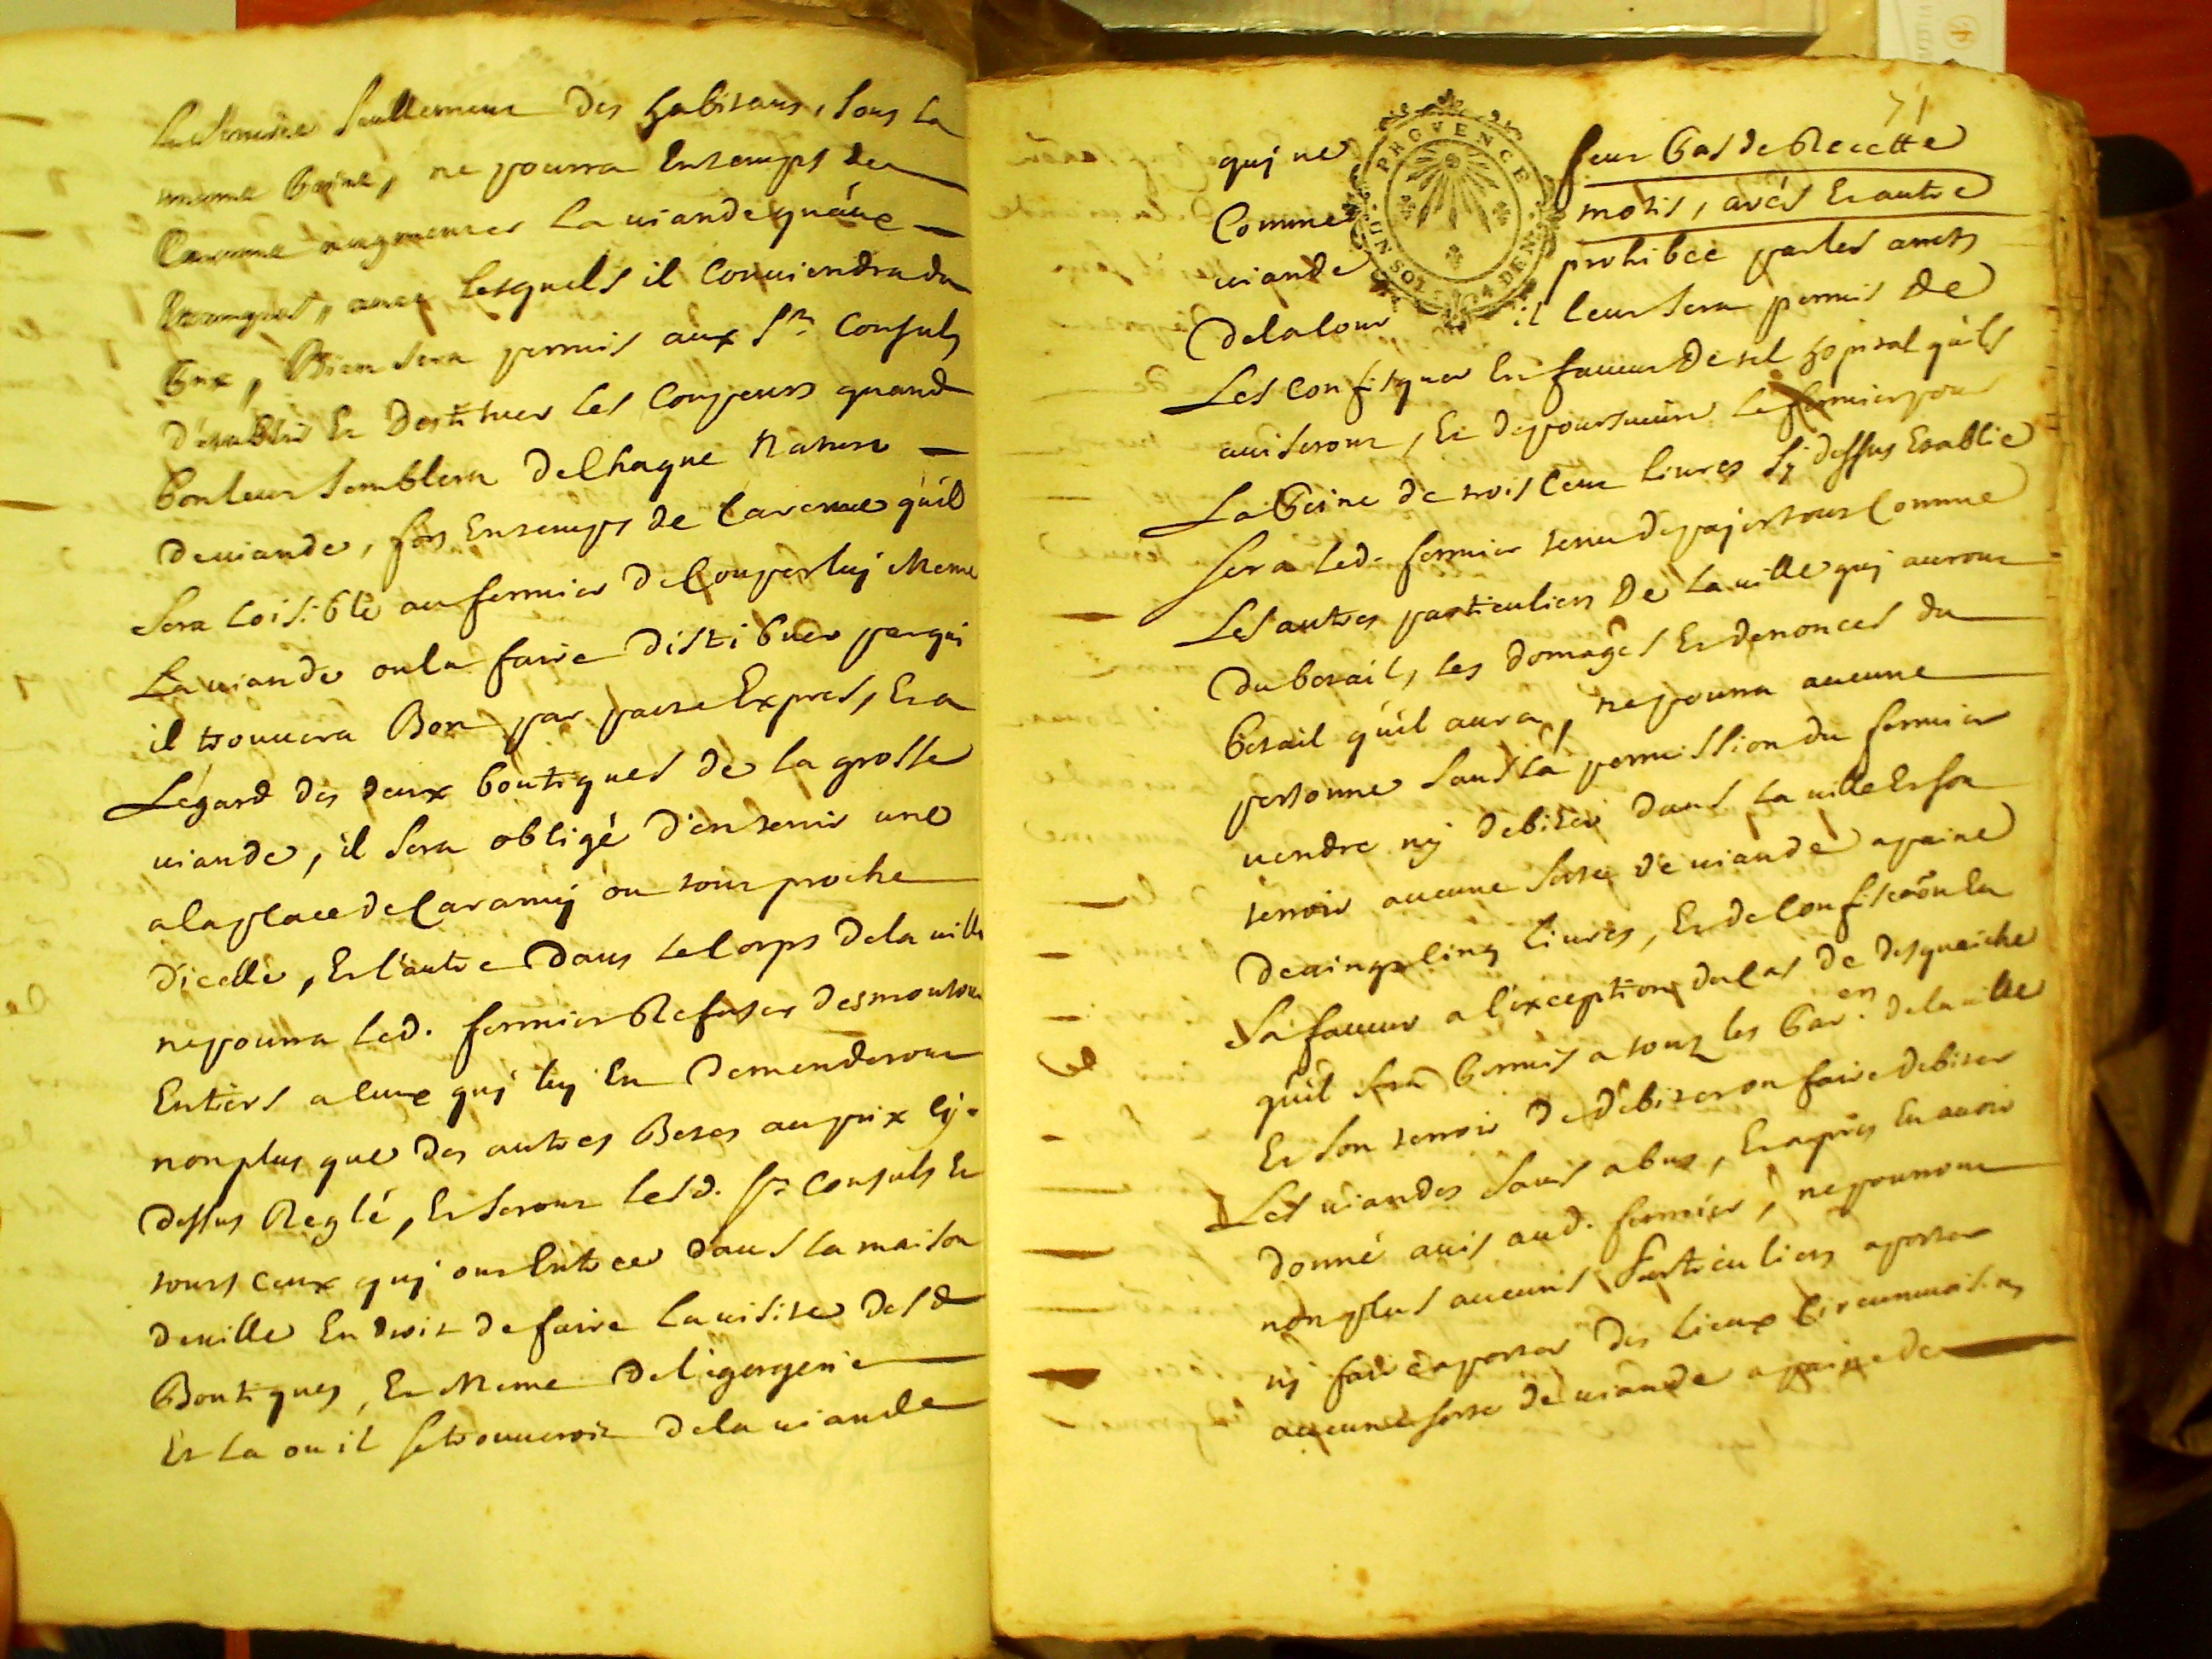 seullement des habitans, sous la
meme peine, ne pourra entemps de
Careme augmenter la viande qu'aux
Etrangers, avec lesquels il conviendra du
prix, Bien sera permis aux Srs Consuls
d'établir Et destituer les coupeurs quand
bon leur semblera de Chaque Nature
deviande, fors Entemps de Careme qu'il
sera loisible au fermier de Couper luy Meme
La viande ou la faire distibuer par qui
il trouvera Bon par pacte Expres, Et a
L'égard des deux boutiques de la grosse
viande, il sera obligé d'en tenir une
a la place de Caramy ou tout proche
d'icelle, Et l'autre Dans le Corps de la ville
ne pourra led. fermier Refuser des moutons
Entiers a Ceux quj luy En Demenderont
non plus que des autres Betes au prix cy.
dessus Reglé, Et seront lesd. Srs Consuls Et
touts ceux quj ont Entree dans la maison
deville En droit de faire la visite desd
Boutiques, Et Meme De l'égorgerie
Et la ou il se trouveroit dela viande
71
quj ne feut pas de Recette
PROVENCE
UN SOL 4 DEN.
Comme motis, avés Et autre
viande prohibée par les arrets
de la Cour il leur sera permis de
Les Confisquer En faveur de tel hopital qu'ils
aviseront, Et de poursuivre le fermier pour
La peine de trois Cent livres sy dessus Etablie
sera led. fermier tenu de pajer tout Comme
Les autres particuliers de la ville quj auront
du betail, les domages Et denonces du
betail qu'il aura, ne pourra aucune
personne sans la permission du fermier
vendre nj debiter dans la ville Et son
terroir aucune sorte de viande apeine
de vingt cinq livres, Et de Confiscaõn en
sa faveur a l'exception du Cas de
qu'il sera permis a tout les par.en de la ville
Et son terroir de débiter ou faire debiter
Les viandes sans abus, Et après En avoir
donné avis aud. fermier, ne pourront
non plus aucuns particuliers aporter
nj faire aporter des lieux Circonvoisins
aucune sorte de viande apeine de